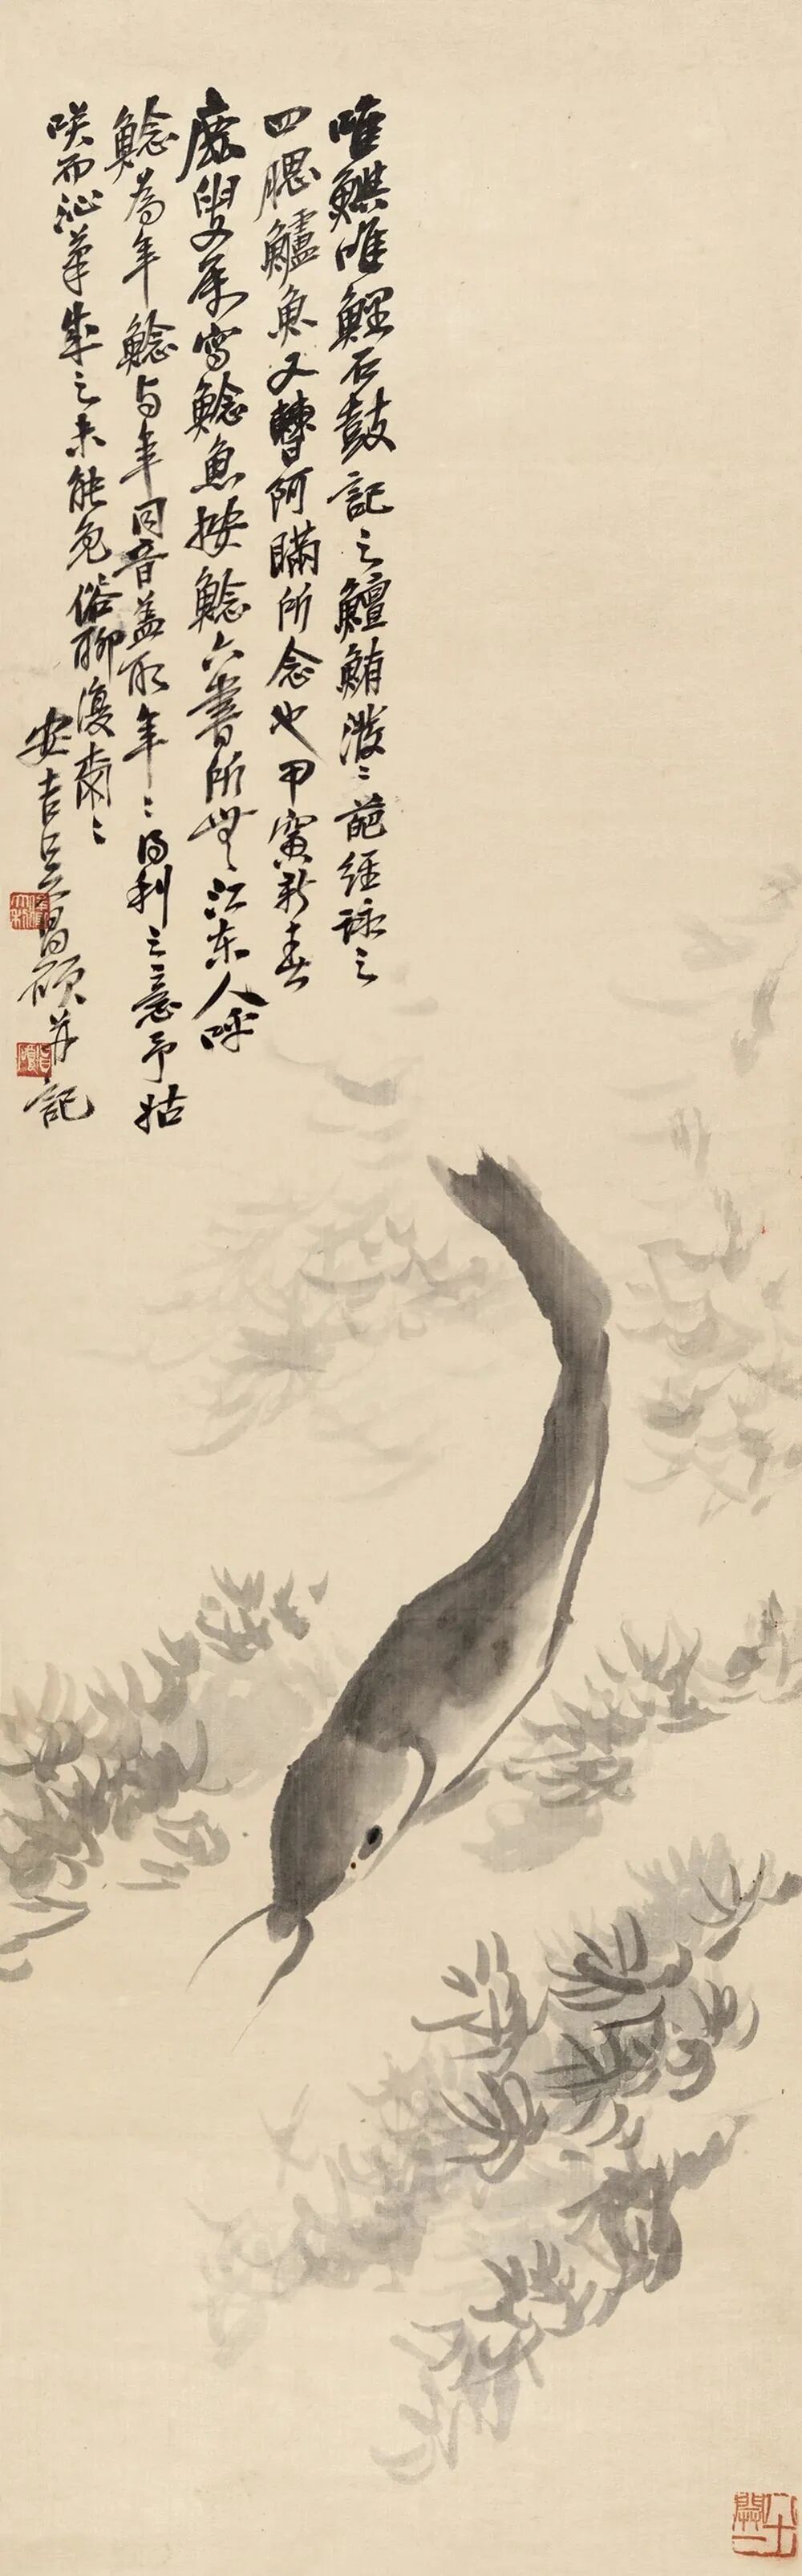 唯鱮唯鯉石鼓記之鱣鮪潑〻葩經詠之
四腮鱸魚又曹阿瞞所念也甲寅新春
叟屬寫鯰魚按鯰六書所無江東人呼
鯰為年鯰与年同音蓋取年〻得利之意予姑
咲而沁筆成之未能免俗聊復爾〻
安吉吳昌碩并記